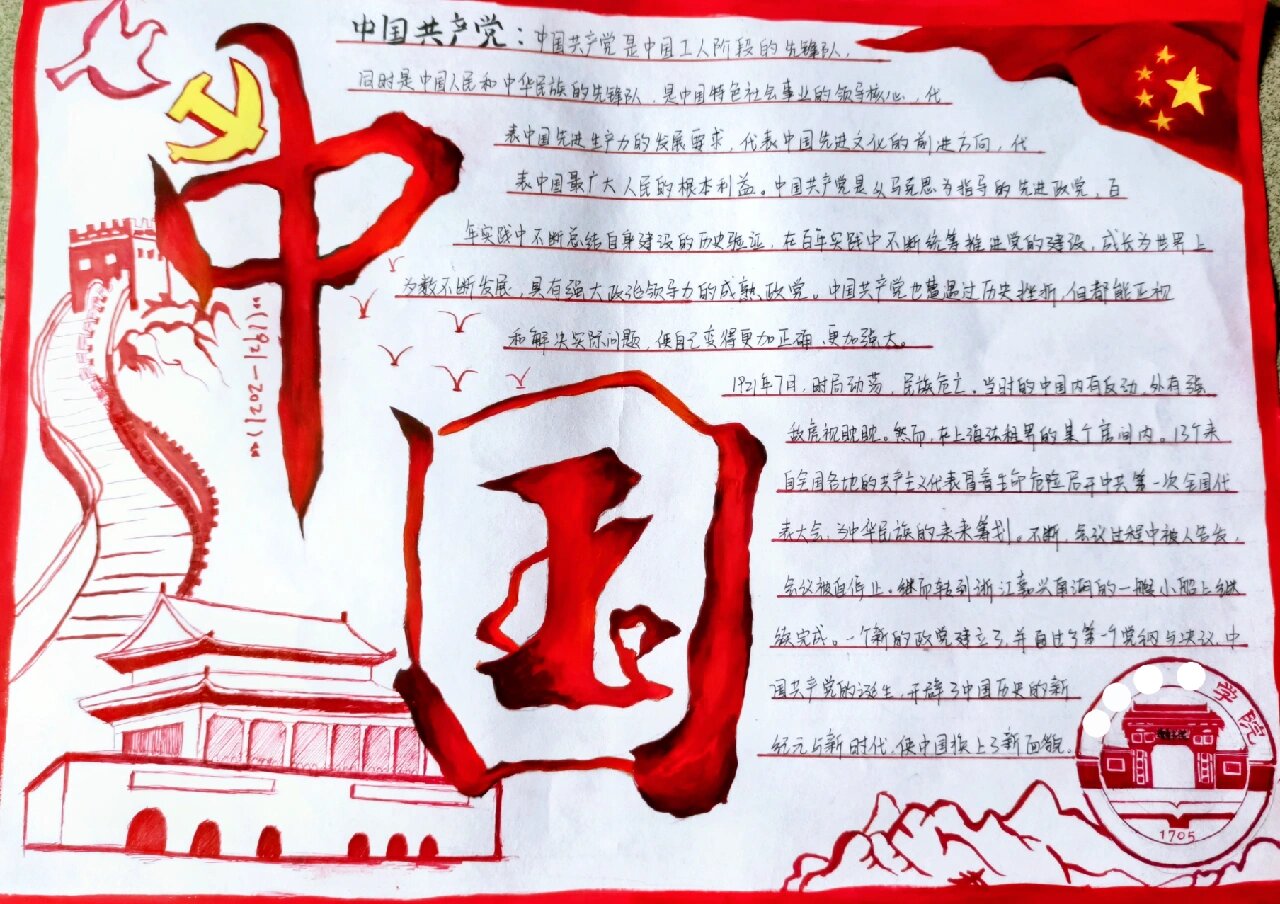 中国共产党：中国共产党是中国工人阶段的先锋队，
同时是中国人民和中华民族的先锋队，是中国特色社会事业的领导核心，代
表中国先进生产力的发展要求，代表中国先进文化的前进方向，代
表中国最广大人民的根本利益。中国共产党是以马克思为指导的先进政党，百
年实践中不断总结自身建设的历史验证，在百年实践中不断统筹推进党的建设，成长为世界上
为数不断发展，具有强大政治领导力的成熟政党。中国共产党也遭遇过历史挫折，但都能正视
和解决实际问题，使自己变得更加正确、更加强大。
1921年7月，时局动荡，民族危亡。当时的中国内有反动，外有强
敌虎视眈眈。然而，在上海法租界的某个房间内。13个来
自全国各地的共产主义代表冒着生命危险召开中共第一次全国代
表大会，为中华民族的未来筹划。不断，会议过程中被人告发，
会议被自停止。继而转到浙江嘉兴南湖的一艘小船上继
续完成。一个新的政党建立了，并自过了第一个党纲与决议，中
国共产党的诞生，开辟了中国历史的新
纪元与新时代，使中国换上了新面貌。
中国
(1921—2021)
学院
1705